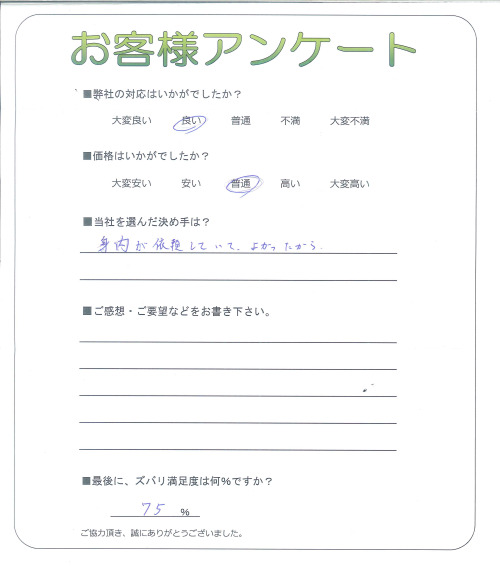 お客様アンケート
■弊社の対応はいかがでしたか？
大変良い 良い 普通 不満 大変不満
■価格はいかがでしたか？
大変安い 安い 普通 高い 大変高い
■当社を選んだ決め手は？
身内が依頼していて、よかったから
■ご感想・ご要望などをお書き下さい。
■最後に、ズバリ満足度は何％ですか？
75 ％
ご協力頂き、誠にありがとうございました。